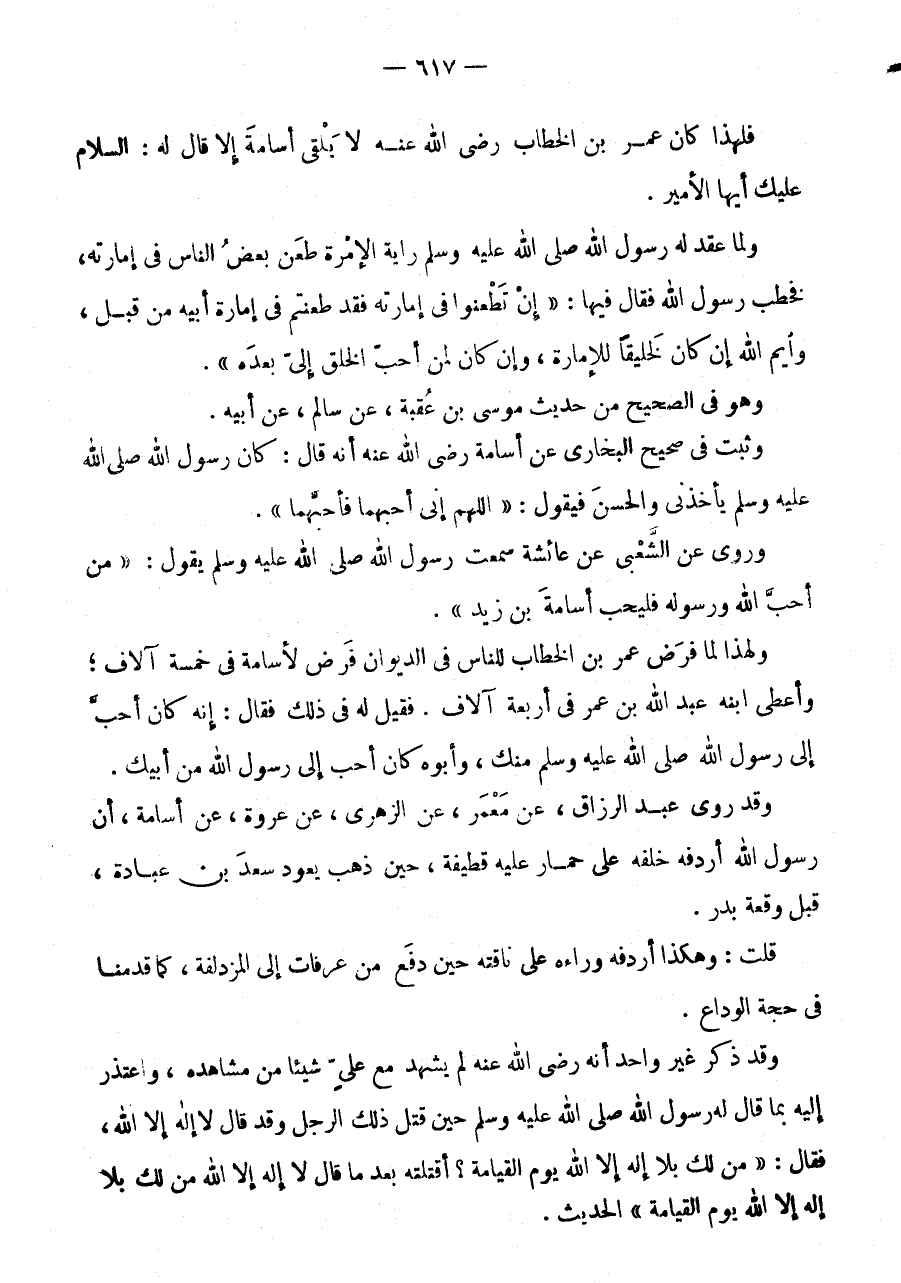 — ٦١٧ —
فلهذا كان عمـر بن الخطاب رضى الله عنـه لا يَلْقى أسامةَ إلا قال له : السلام
عليك أيها الأمير .
ولما عقد له رسول الله صلى الله عليه وسلم راية الإمْرة طعَن بعضُ الناس فى إمارته،
فخطب رسول الله فقال فيها : « إنْ تَطْعنوا فى إمارته فقد طعنتم فى إمارة أبيه من قبـل ،
وأيم الله إن كان لخليقاً للإمارة ، وإن كان لمن أحبّ الخلق إلىّ بعدَه » .
وهو فى الصحيح من حديث موسى بن عُقبة ، عن سالم ، عن أبيه .
وثبت فى صحيح البخارى عن أسامة رضى الله عنه أنه قال : كان رسول الله صلى الله
عليه وسلم يأخذنى والحسنَ فيقول : « اللهم إنى أحبهما فأحبَّهما » .
وروى عن الشَّعْبى عن عائشة سمعت رسول الله صلى الله عليه وسلم يقول : « من
أحبَّ الله ورسوله فليحب أسامةَ بن زيد » .
ولهذا لما فرَض عمر بن الخطاب للناس فى الديوان فَرَض لأسامة فى خمسة آلاف ؛
وأعطى ابنه عبد الله بن عمر فى أربعة آلاف . فقيل له فى ذلك فقال : إنه كان أحبَّ
إلى رسول الله صلى الله عليه وسلم منك ، وأبوه كان أحب إلى رسول الله من أبيك .
وقد روى عبـد الرزاق ، عن مَعْمَر ، عن الزهرى ، عن عروة ، عن أسامة ، أن
رسول الله أردفه خلفه على حمـار عليه قطيفة ، حين ذهب يعود سعدَ بن عبـادة ،
قبل وقعة بدر .
قلت : وهكذا أردفه وراءه على ناقته حين دفَع من عرفات إلى المزدلفة ، كما قدمنـا
فى حجة الوداع .
وقد ذكر غير واحد أنه رضى الله عنه لم يشهد مع علىّ شيئا من مشاهده ، واعتذر
إليه بما قال له رسول الله صلى الله عليه وسلم حين قتل ذلك الرجل وقد قال لا إله إلا الله ،
فقال : « من لك بلا إله إلا الله يوم القيامة ؟ أقتلته بعد ما قال لا إله إلا الله من لك بلا
إله إلا الله يوم القيامة » الحديث .